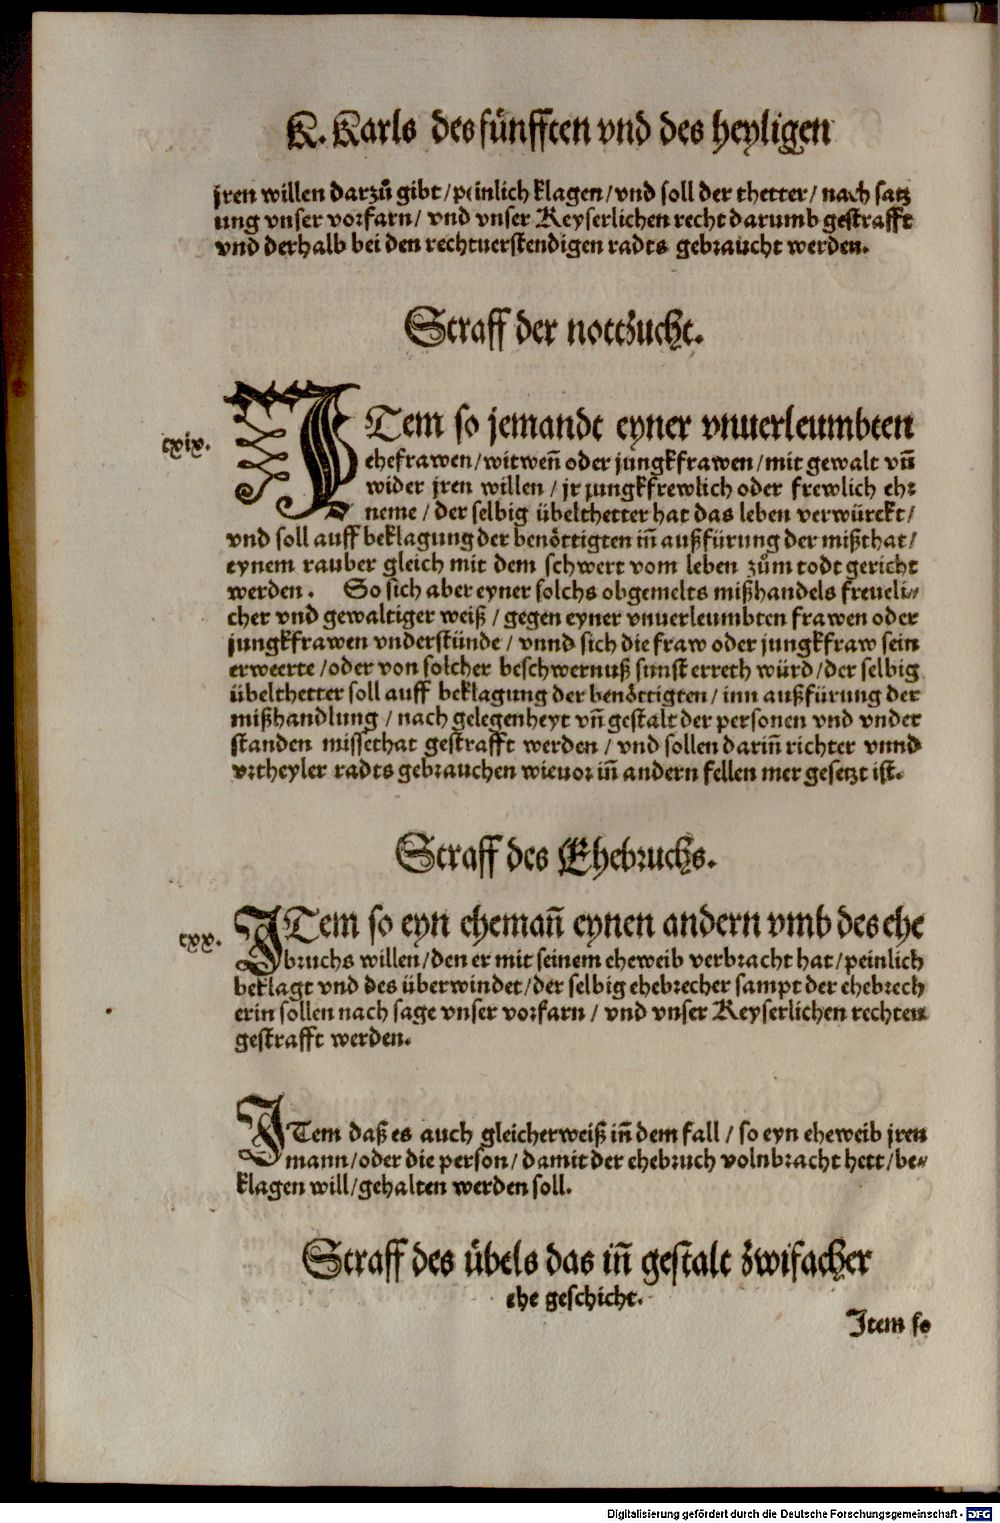 K. Karls des fünfften vnd des heyligen
jren willen darzů gibt / peinlich klagen / vnd soll der thetter / nach satz
ung vnser vorfarn / vnd vnser Keyserlichen recht darumb gestrafft
vnd derhalb bei den rechtuerstendigen radts gebraucht werden.
Straff der nottzucht.
cxix.
ITem so jemandt eyner vnuerleumbten
ehefrawen / witweñ oder jungkfrawen / mit gewalt vñ
wider jren willen / jr jungkfrewlich oder frewlich ehr
neme / der selbig übelthetter hat das leben verwürckt /
vnd soll auff beklagung der benöttigten iñ außfürung der mißthat /
eynem rauber gleich mit dem schwert vom leben zům todt gericht
werden. So sich aber eyner solchs obgemelts mißhandels freueli⸗
cher vnd gewaltiger weiß / gegen eyner vnuerleumbten frawen oder
jungkfrawen vnderstünde / vnnd sich die fraw oder jungkfraw sein
erweerte / oder von solcher beschwernuß sunst erreth würd / der selbig
übelthetter soll auff beklagung der benöttigten / inn außfürung der
mißhandlung / nach gelegenheyt vñ gestalt der personen vnd vnder
standen missethat gestrafft werden / vnd sollen dariñ richter vnnd
vrtheyler radts gebrauchen wieuor iñ andern fellen mer gesetzt ist.
Straff des Ehebruchs.
cxx.
ITem so eyn ehemañ eynen andern vmb des ehe
bruchs willen / den er mit seinem eheweib verbracht hat / peinlich
beklagt vnd des überwindet / der selbig ehebrecher sampt der ehebrech
erin sollen nach sage vnser vorfarn / vnd vnser Keyserlichen rechten
gestrafft werden.
ITem daß es auch gleicherweiß iñ dem fall / so eyn eheweib jren
mann / oder die person / damit der ehebruch volnbracht hett / be⸗
klagen will / gehalten werden soll.
Straff des übels das iñ gestalt zwifacher
ehe geschicht.
Item so
Digitalisierung gefördert durch die Deutsche Forschungsgemeinschaft - DFG